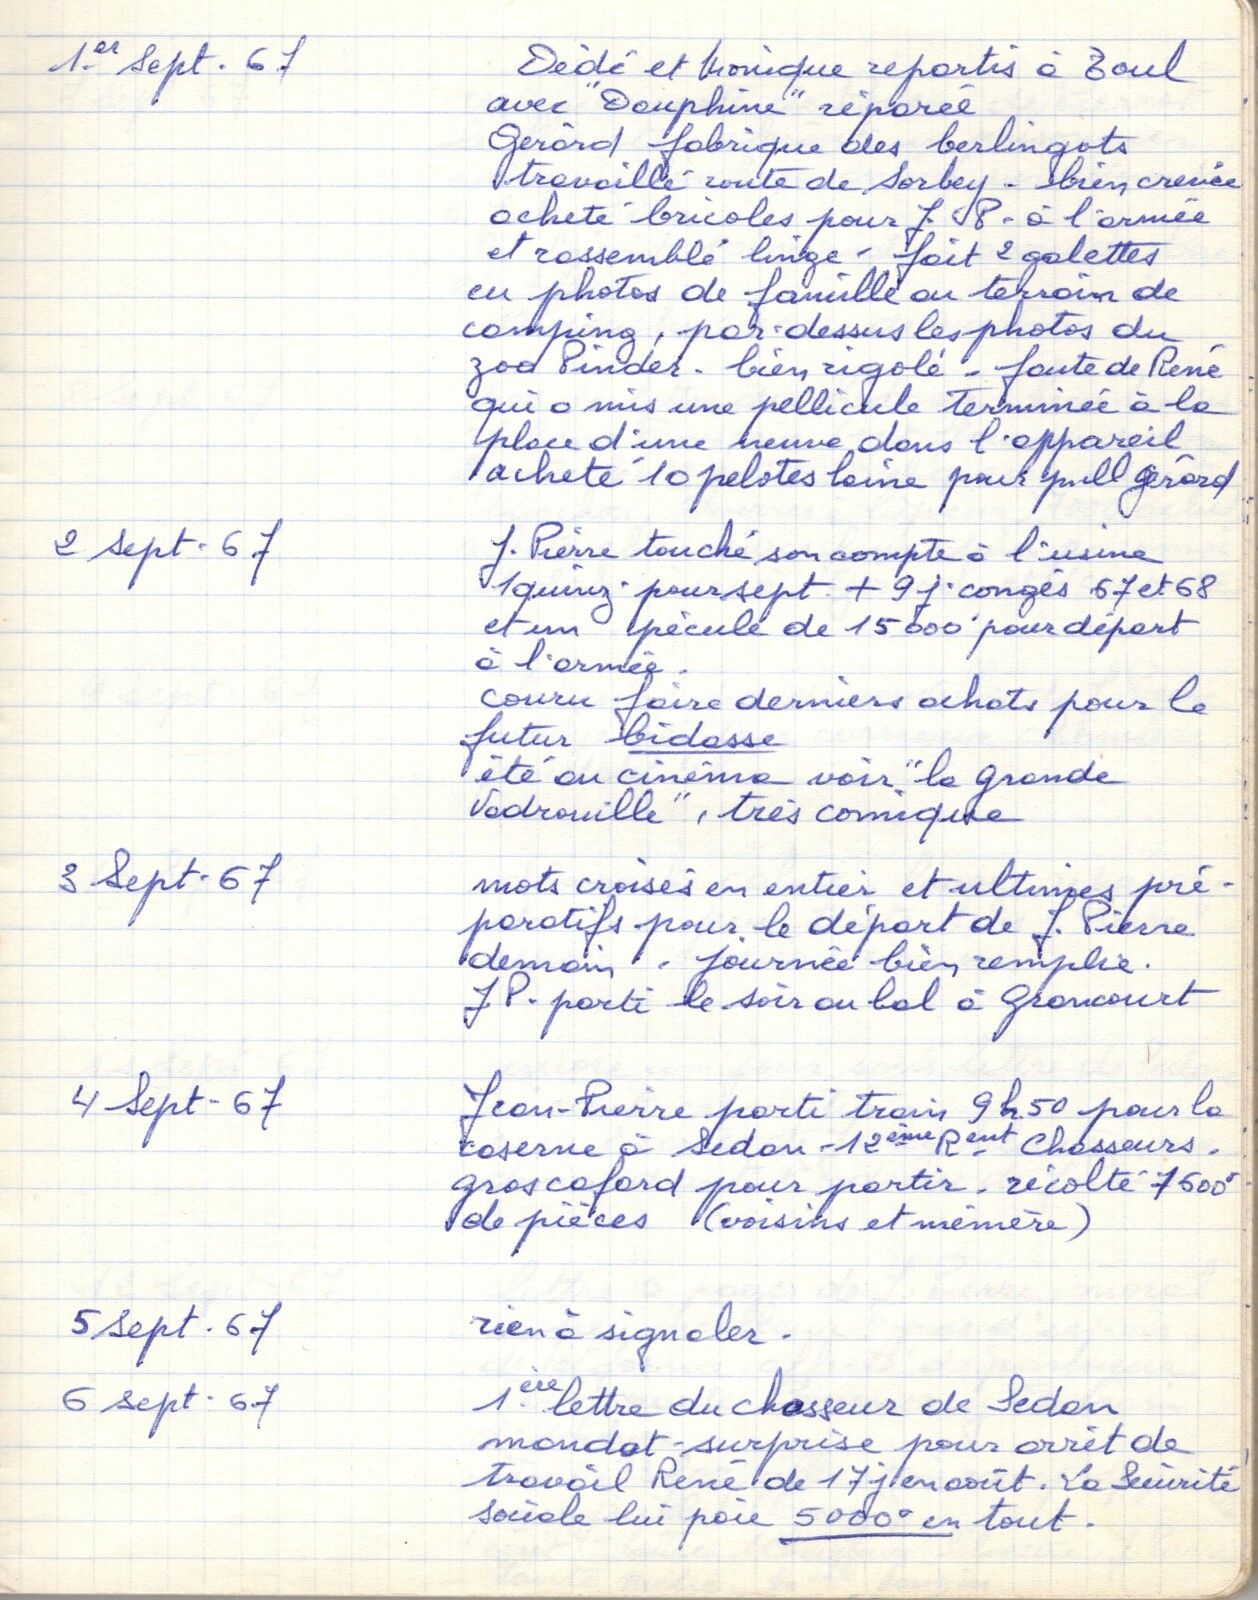 1er Sept. 67 Dédé et Monique repartis à Toul
avec "Dauphine" réparée
Gérard fabrique des berlingots
travaillé route de Sorbey - bien crevée
acheté bricoles pour J. P. à l'armée
et rassemblé linge - fait 2 galettes
eu photos de famille au terrain de
camping, par-dessus les photos du
zoo Pinder. bien rigolé - faute de René
qui a mis une pellicule terminée à la
place d'une neuve dans l'appareil
acheté 10 pelotes laine pour pull Gérard
2 sept. 67 J. Pierre touché son compte à l'usine
1 quinz. pour sept. + 9 j. congés 67 et 68
et un pécule de 15000 pour départ
à l'armée.
couru faire derniers achats pour le
futur bidasse
été au cinéma voir "la Grande
Vadrouille", très comique
3 Sept. 67 mots croisés en entier et ultimes pré-
paratifs pour le départ de J. Pierre
demain. journée bien remplie.
J P. parti le soir au bal à Grancourt
4 Sept - 67 Jean-Pierre parti train 9h50 pour la
caserne à Sedan - 12ème Rent Chasseurs.
gros cafard pour partir. récolté 7600
de pièces (voisins et mémère)
5 sept. 67 rien à signaler.
6 sept. 67 1ère lettre du chasseur de Sedan
mandat-surprise pour arrêt de
travail René de 17 j en août. La Sécurité
sociale lui paie 5000 en tout.